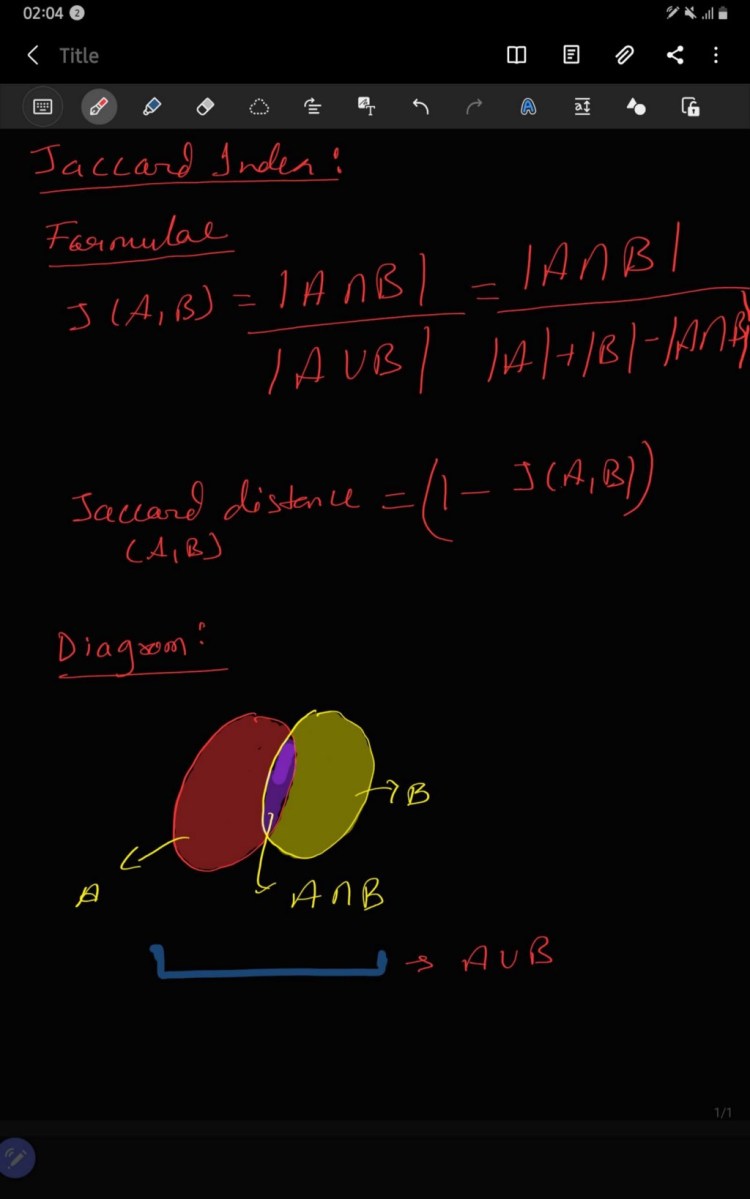 02:04 2
Title
Jaccard Index:
Formulae
J(A,B) = |A∩B| / |A∪B| = |A∩B| / |A|+|B|-|A∩B|
Jaccard distance = (1 - J(A,B))
(A,B)
Diagram:
B
A
A∩B
→ A∪B
1/1